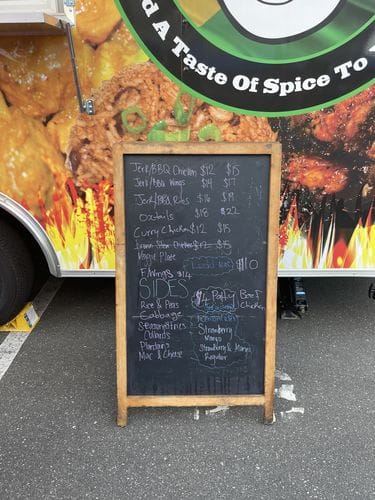 d A Taste Of Spice To
Jerk/BBQ Chicken $12 $15
Jerk/BBQ Wings $14 $17
Jerk/BBQ Ribs $16 $19
Oxtails $18 $22
Curry Chicken $12 $15
Brown Stew Chicken $12 $15
Veggie Plate $10
F/Wings $14
SIDES
Rice & Peas
Cabbage
Seasoned Fries
Collards
Plantains
Mac & Cheese
$4 Patty Beef
Chicken
Strawberry
Mango
Strawberry & Mango
Regular